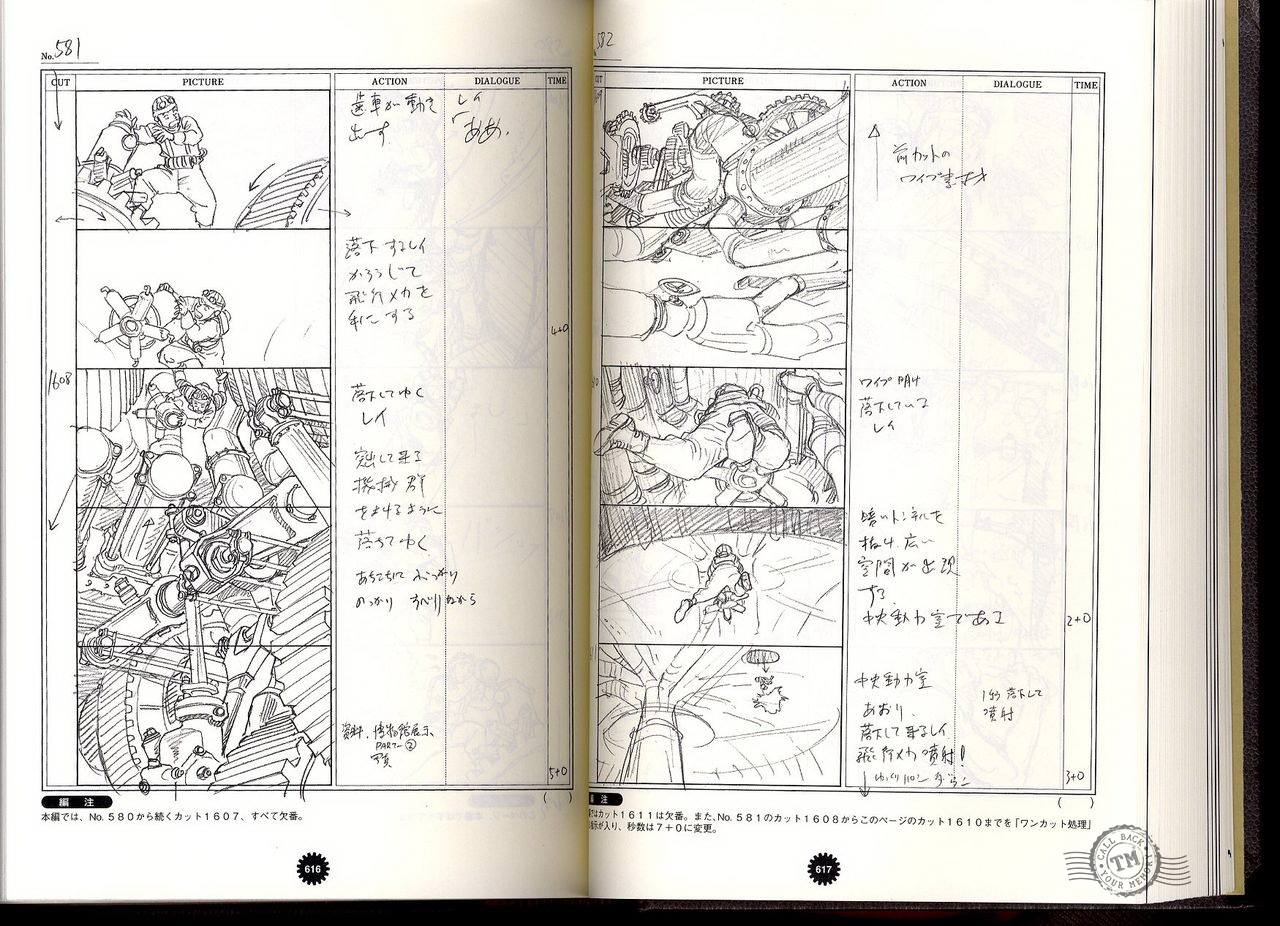 No. 581
CUT PICTURE ACTION DIALOGUE TIME
歯車が動き
出す
レイ
「ああ、
落下するレイ
かろうじて
飛行メカを
手にする
4+0
1608
落下してゆく
レイ
密して来る
機械群
をよけるように
落ちてゆく
あちこちに ぶつかり
のっかり すべりながら
資料、博物館展示、
PART-②
写真
5+0
( )
編 注
本編では、No. 580から続くカット1607、すべて欠番。
616
582
CUT PICTURE ACTION DIALOGUE TIME
前カットの
ワイプ
ワイプ明け
落下している
レイ
暗いトンネルを
抜け、広い
空間が出現
する
中央動力室である
2+0
中央動力室
あおり、
落下して来るレイ
飛行メカ噴射!
落下して
噴射
3+0
( )
注
はカット1611は欠番。また、No. 581のカット1608からこのページのカット1610までを「ワンカット処理」
指示が入り、秒数は7+0に変更。
617
CALL BACK
TM
YOUR MEMORY